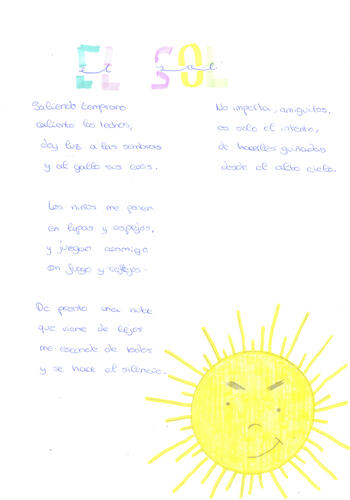 EL SOL
el sol
Saliendo temprano
caliento los techos,
doy luz a las sombras
y al gallo sus ecos.
Los niños me ponen
en lupas y espejos,
y juegan conmigo
en fuego y reflejos.
De pronto una nube
que viene de lejos
me esconde de todos
y se hace el silencio.
No importa, amiguitos,
es solo el intento,
de hacerles guiñadas
desde el alto cielo.